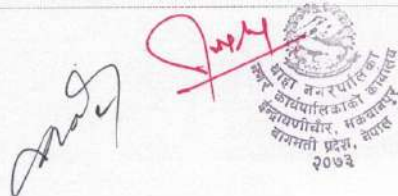 थाहा नगरपालिका
नगर कार्यपालिकाको कार्यालय
ईन्द्रायणीचौर, मकवानपुर
बागमती प्रदेश, नेपाल
२०७३